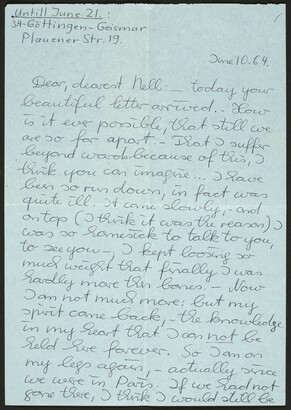 Untill June 21.:
34-Göttingen-Geismar
Plauener Str. 19.
1
June 10. 64.
Dear, dearest Nell: – today your
beautiful letter arrived.. How
is it ever possible, that still we
are so far apart. – That I suffer
beyond words because of this, I
think you can imagine... I have
been so run down, in fact was
quite ill. It came slowly, – and
on top (I think it was the reason) I
was so homesick to talk to you,
to see you –, I kept loosing so
much weight that finally I was
hardly more than bones. – Now
I am not much more; but my
spirit came back, – the knowledge
in my heart that I can not be
held here forever. So I am on
my legs again, – actually since
we were in Paris. If we had not
gone there, I think I would still be